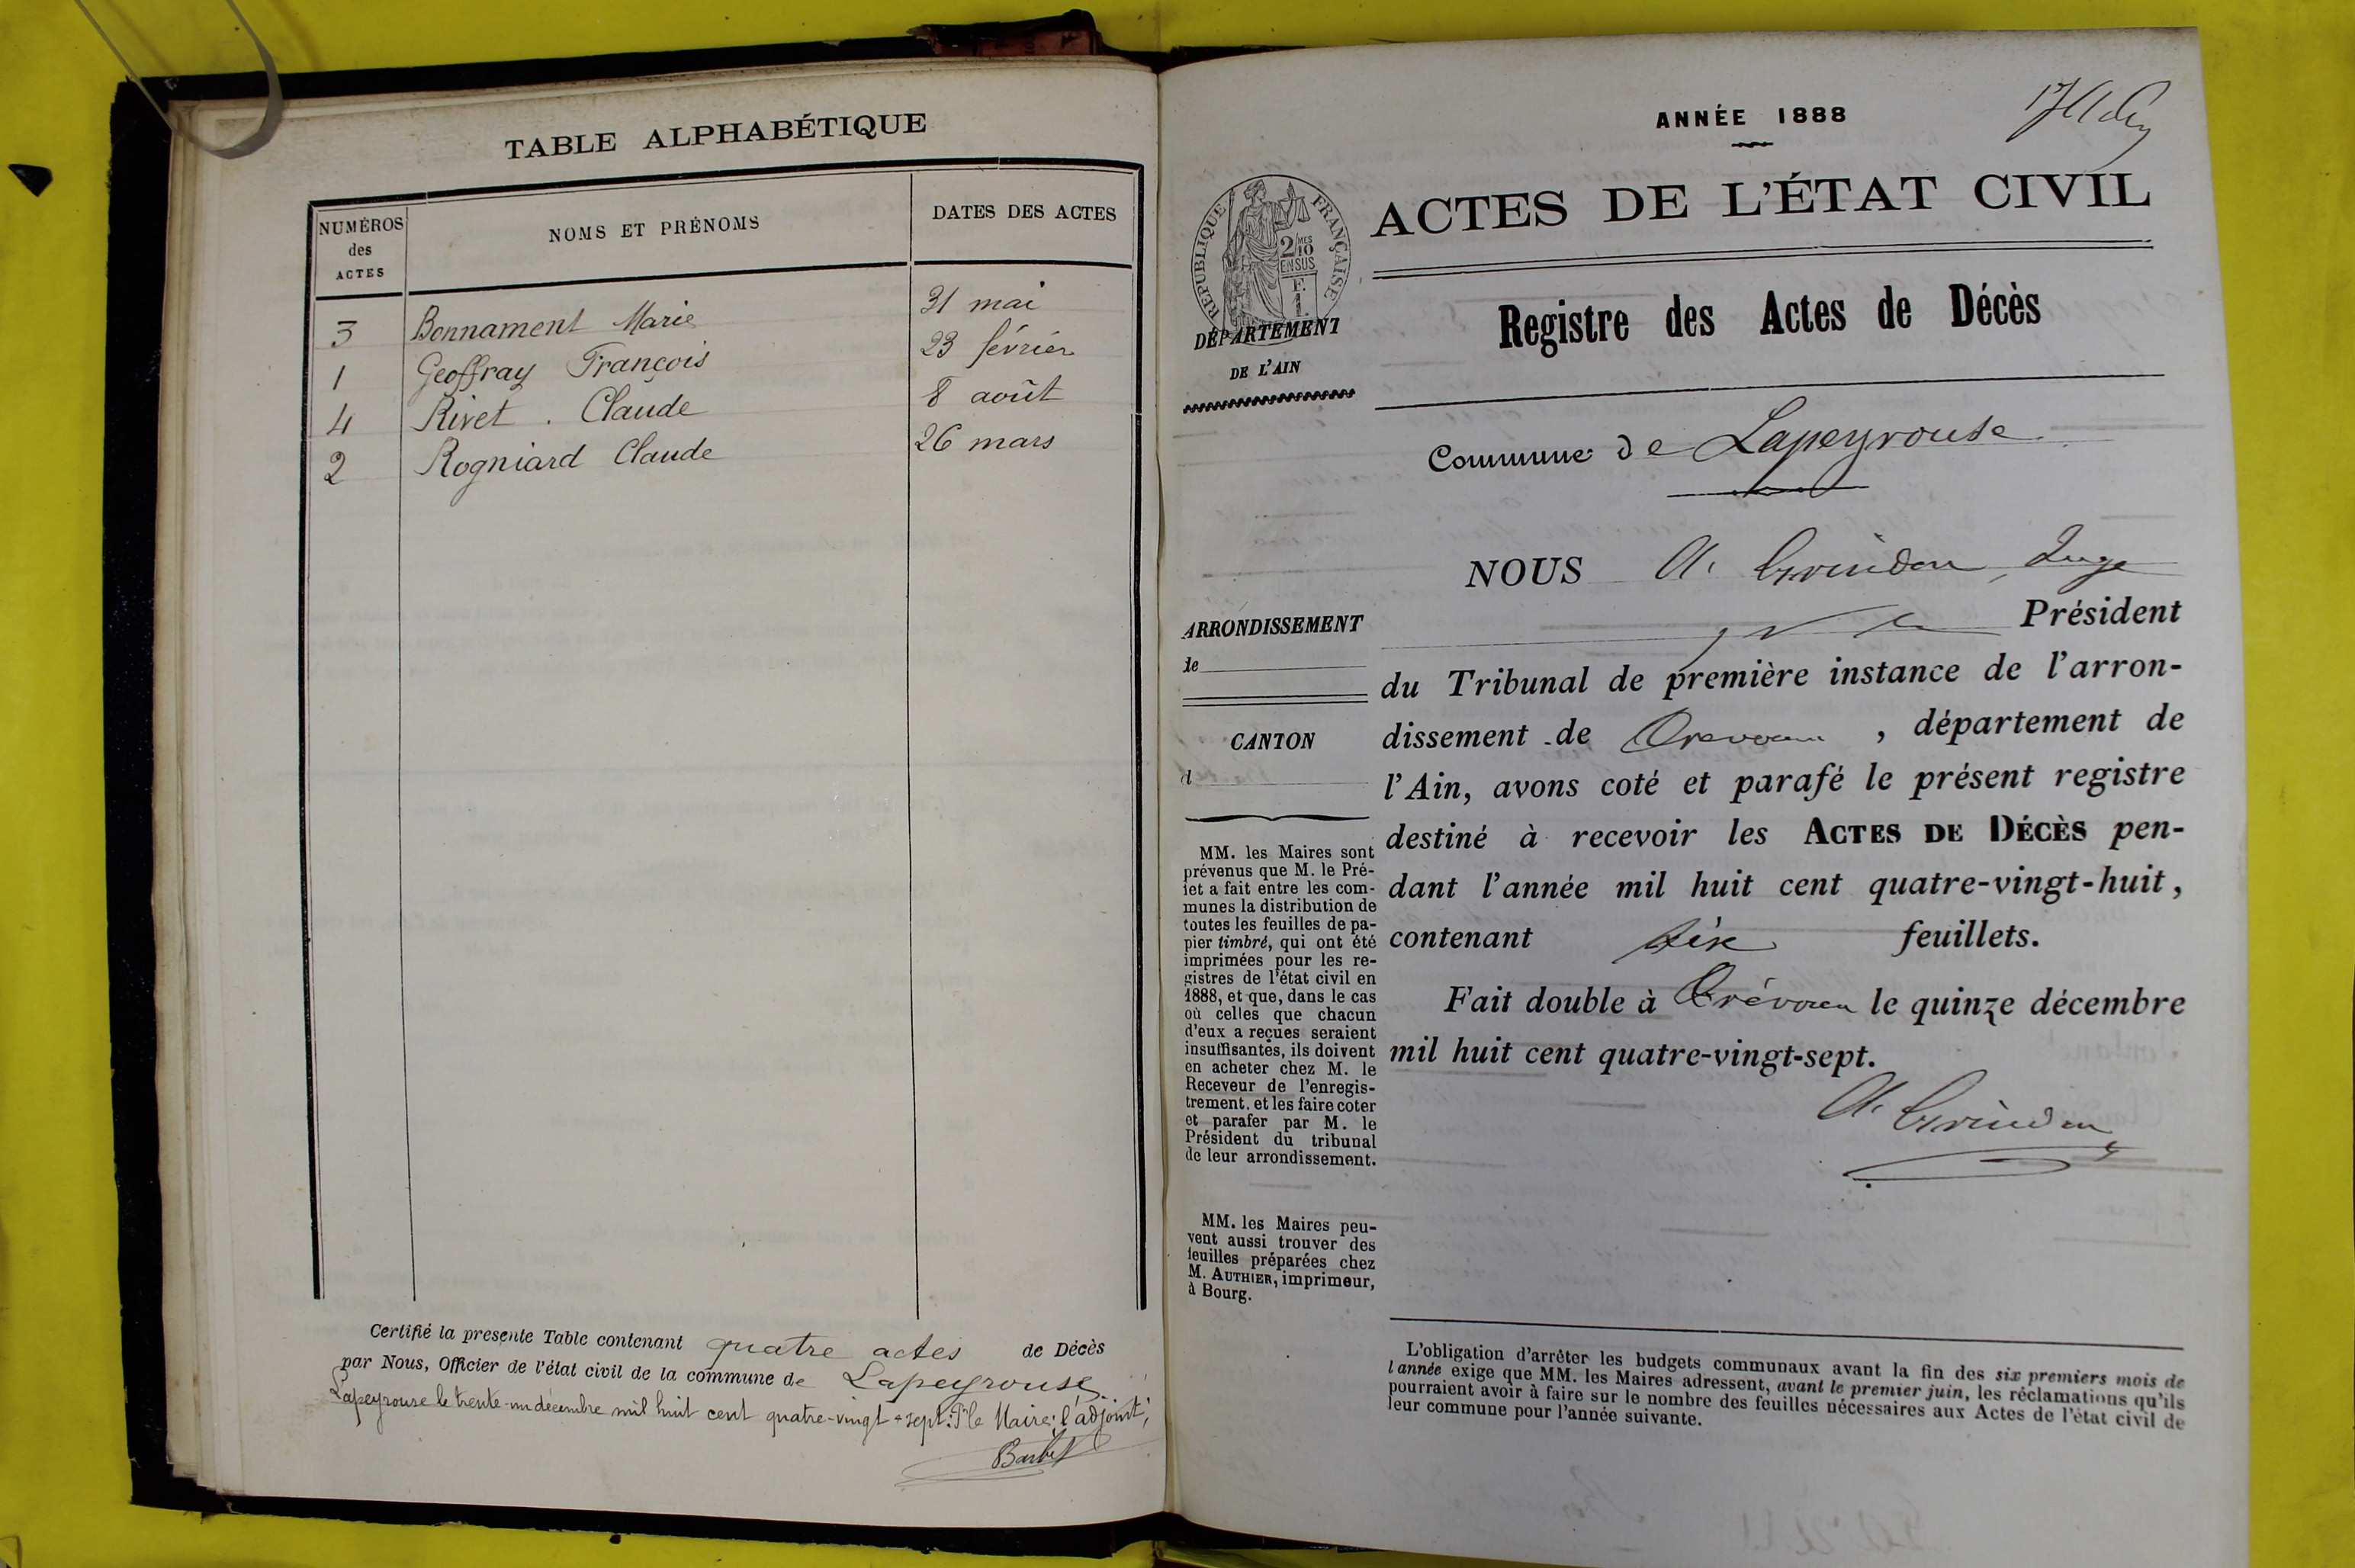 TABLE ALPHABÉTIQUE
NUMÉROS
des
ACTES
NOMS ET PRÉNOMS
DATES DES ACTES
3 Bonnament Marie 31 mai
1 Geoffray François 23 février
4 Rivet . Claude 8 août
2 Rogniard Claude 26 mars
Certifié la presente Table contenant quatre actes de Décès
par Nous, Officier de l'état civil de la commune de Lapeyrouse
Lapeyrouse le trente-un décembre mil huit cent quatre-vingt-sept: Pr le Maire; l'adjoint;
Barbet
ANNÉE 1888
ACTES DE L'ÉTAT CIVIL
RÉPUBLIQUE FRANÇAISE
2/10 MES
EN SUS
F.
1
DÉPARTEMENT
DE L'AIN
Registre des Actes de Décès
Commune de Lapeyrouse
NOUS A. Grindon, Juge
Président
du Tribunal de première instance de l'arron-
dissement de Trévoux, département de
l'Ain, avons coté et parafé le présent registre
destiné à recevoir les ACTES DE DÉCÈS pen-
dant l'année mil huit cent quatre-vingt-huit,
contenant six feuillets.
Fait double à Trévoux le quinze décembre
mil huit cent quatre-vingt-sept.
A. Grindon
ARRONDISSEMENT
de
CANTON
d
MM. les Maires sont
prévenus que M. le Pré-
fet a fait entre les com-
munes la distribution de
toutes les feuilles de pa-
pier timbré, qui ont été
imprimées pour les re-
gistres de l'état civil en
1888, et que, dans le cas
où celles que chacun
d'eux a reçues seraient
insuffisantes, ils doivent
en acheter chez M. le
Receveur de l'enregis-
trement, et les faire coter
et parafer par M. le
Président du tribunal
de leur arrondissement.
MM. les Maires peu-
vent aussi trouver des
feuilles préparées chez
M. AUTHIER, imprimeur,
à Bourg.
L'obligation d'arrêter les budgets communaux avant la fin des six premiers mois de
l'année exige que MM. les Maires adressent, avant le premier juin, les réclamations qu'ils
pourraient avoir à faire sur le nombre des feuilles nécessaires aux Actes de l'état civil de
leur commune pour l'année suivante.